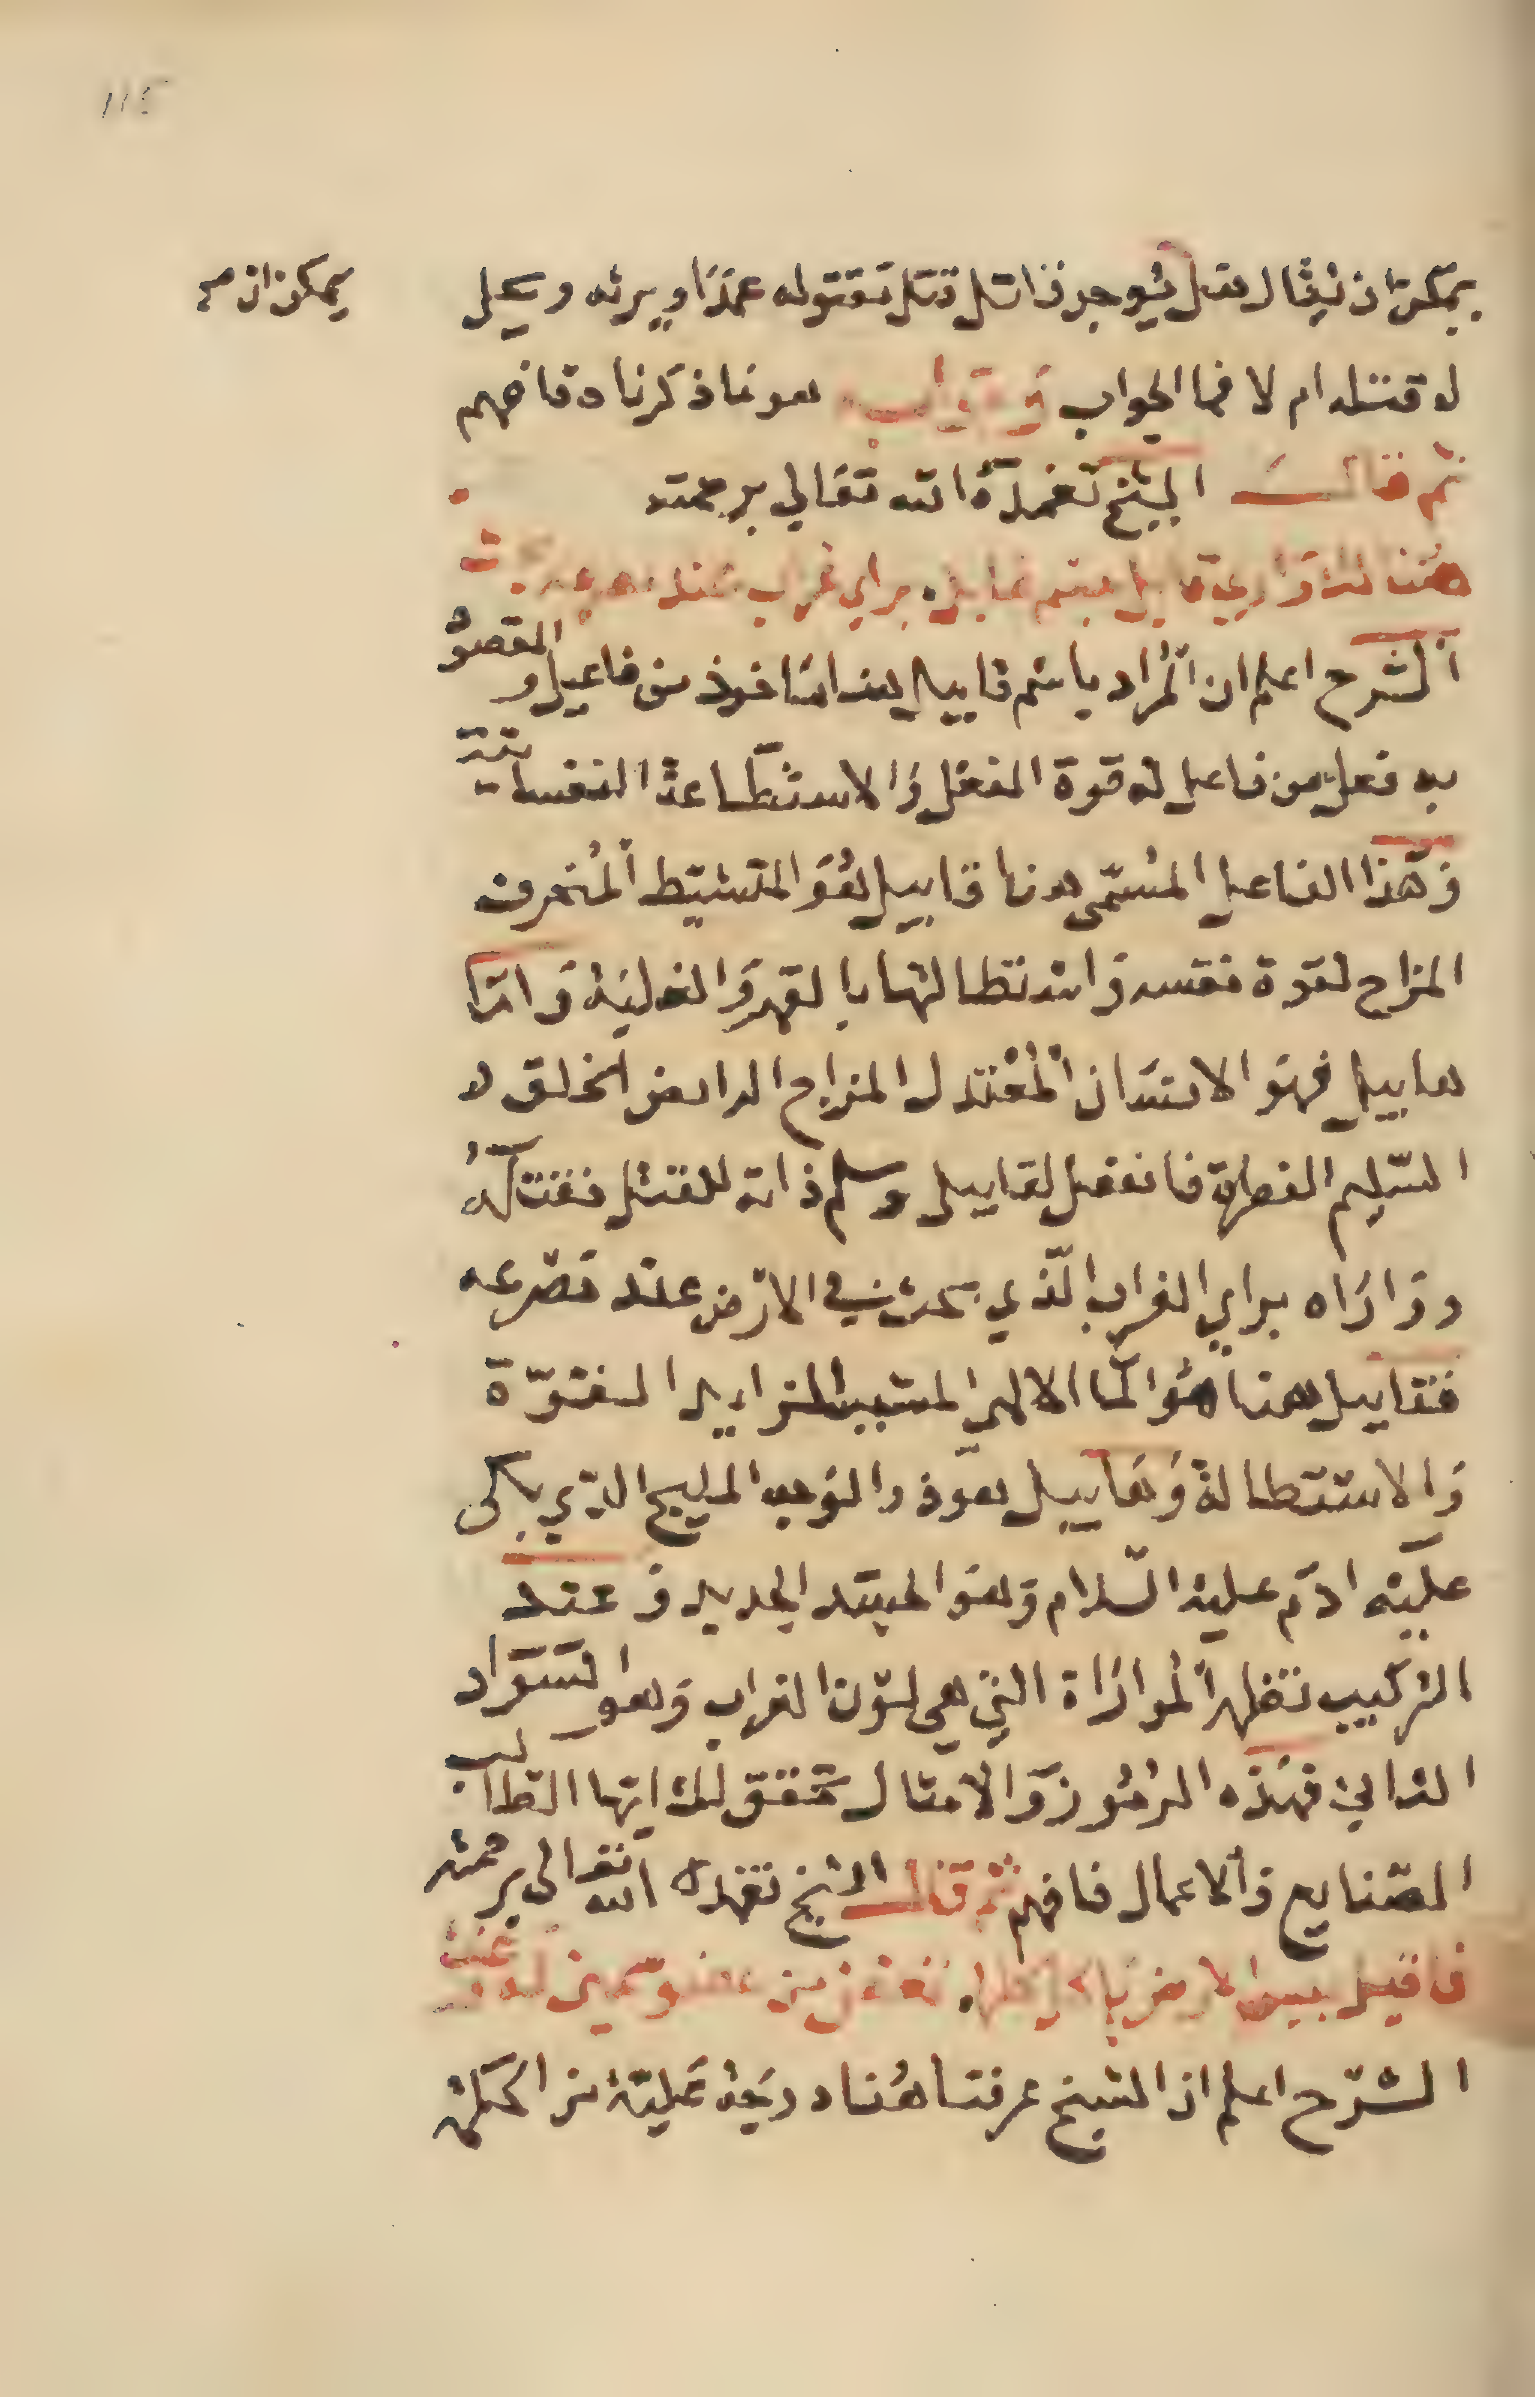 ١١٤
يمكن ان يقال هل يوجد قاتل قتل مقتوله عمدا ويرثه ويحل
يمكن ان صح
له قتله ام لا فما الجواب وجوابه هو ما ذكرناه فافهم
ثم قال الشيخ تغمده الله تعالي برحمته
هنالك واري قابيل جسم هابيل براي غراب عند
الشرح اعلم ان المراد باسم قابيل هنا ماخوذ من فاعيل والمقصود
به فعل من فاعل له قوة الفعل والاستطاعة النفسانية
وهذا الفاعل المسمى هنا قابيل هو المتشيط المنحرف
المزاج لقوة نفسه واستطالتها بالقهر والغلبة واما
هابيل فهو الانسان المعتدل المزاج الخلق
السليم الفطرة فانفعل لقابيل وسلم ذاته للقتل فقتله
وواراه براي الغراب الذي بحث في الارض عند مصرعه
فقابيل هنا هو الما الالهي القوة
والاستطالة وهابيل هو ذو الوجه المليح الذي بكى
عليه ادم عليه السلام وهو الجسد الجديد وعند
التركيب تظهر الموازاة التي هي لون الغراب وهو السواد
الثاني فهذه الرموز والامثال تحقق لك ايها الطالب
الصنايع والاعمال فافهم ثم قال الشيخ تغمده الله تعالى برحمته
فاقبل الارض
الشرح اعلم ان الشيخ عرفنا هنا درجة علية من الحكمة